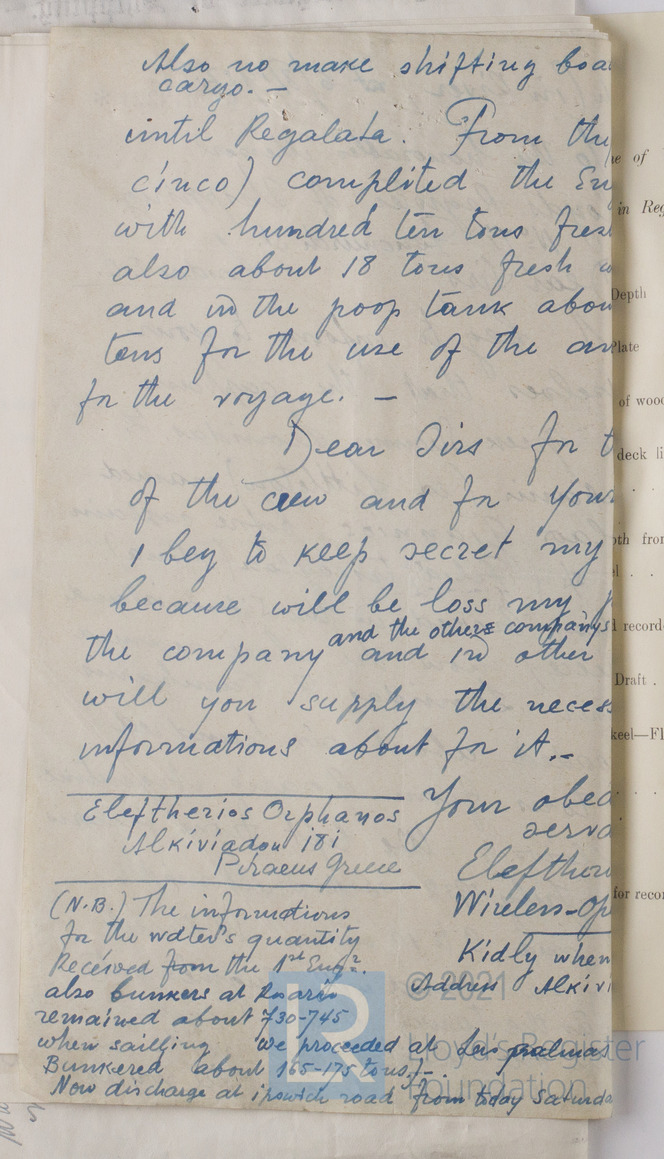 Also no make shifting boa
cargo. —
until Regalata. From the
cinco) complited the En
with hundred ten tons fres
also about 18 tons fresh w
and in the poop tank abou
tons for the use of the
for the voyage. —
Dear Sirs for t
of the crew and for your
I beg to keep secret my
because will be loss my
and the others companys
the company and in other
will you supply the neces
informations about for it.-
Your obed
serva
Eleftherios Orphanos
Alkiviadou 181
Piraeus Greece
Elefther
Wireless-Op
Kidly when
Address Alkivi
(N.B.) The informations
for the water's quantity
Received from the 1st Eng?.
also bunkers at Rosario
remained about 730-745
when sailling we proceeded at Las palmas
Bunkered about 165-175 tons.-
Now discharge at ipswich road from today Saturda
e of
in Reg
Depth
Plate
of wood
deck li
pth from
record
Draft .
keel—Fl
for recor
© 2021
Lloyd's Register
Foundation